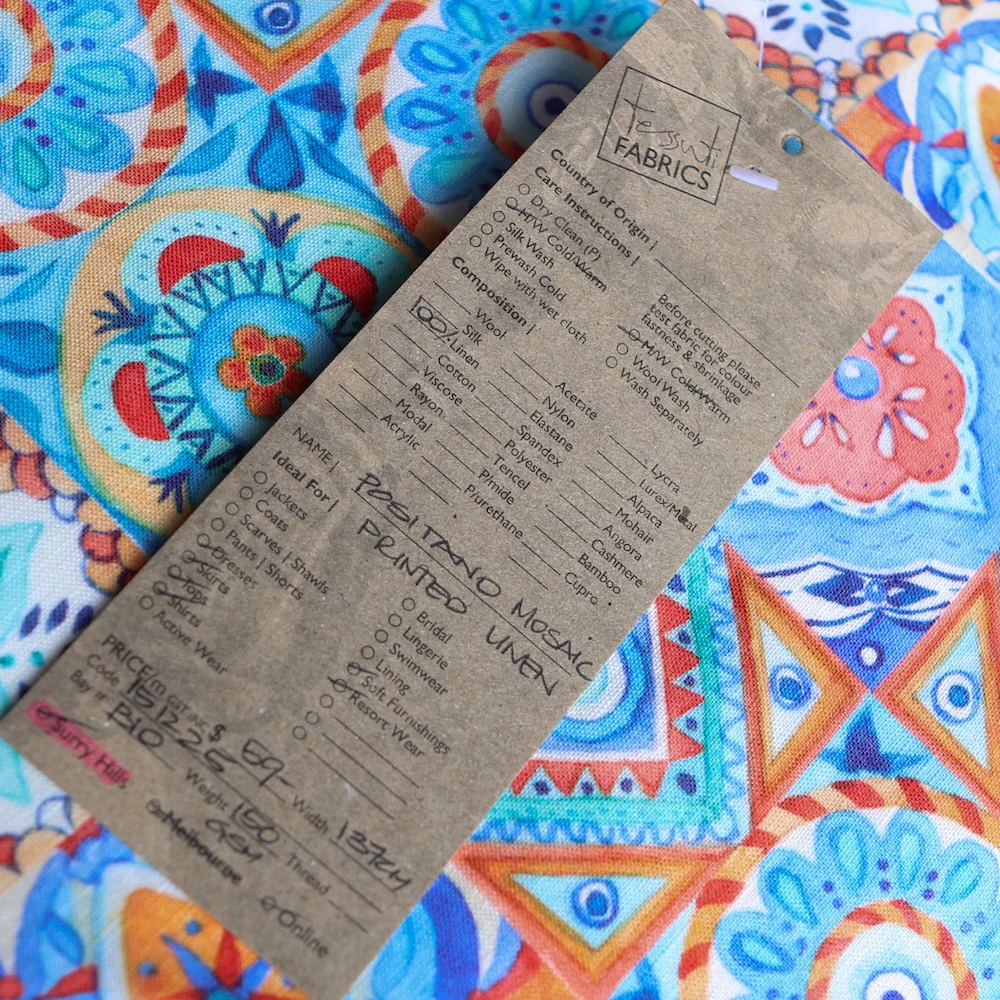 tessuti
FABRICS
Country of Origin |
Care Instructions |
Dry Clean (P)
H/W Cold/Warm
Silk Wash
Prewash Cold
Wipe with wet cloth
Before cutting please
test fabric for colour
fastness & shrinkage
M/W Cold/Warm
Wool Wash
Wash Separately
Composition |
Wool
Silk
100% Linen
Cotton
Viscose
Rayon
Modal
Acrylic
Acetate
Nylon
Elastane
Spandex
Polyester
Tencel
P/mide
P/urethane
Lycra
Lurex/Metal
Alpaca
Mohair
Angora
Cashmere
Bamboo
Cupro
NAME | POSITANO MOSAIC
PRINTED LINEN
Ideal For |
Jackets
Coats
Scarves | Shawls
Pants | Shorts
Dresses
Skirts
Tops
Shirts
Active Wear
Bridal
Lingerie
Swimwear
Lining
Soft Furnishings
Resort Wear
PRICE/m GST INC $ 59-
Code 151225
Width 137CM
Bay n° B10
Weight 150 GSM
Thread
Surry Hills
Melbourne
Online